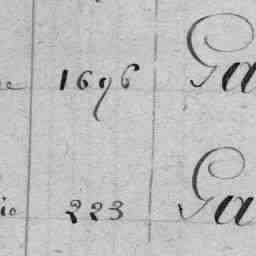 1696 Ga
io 223 Ga